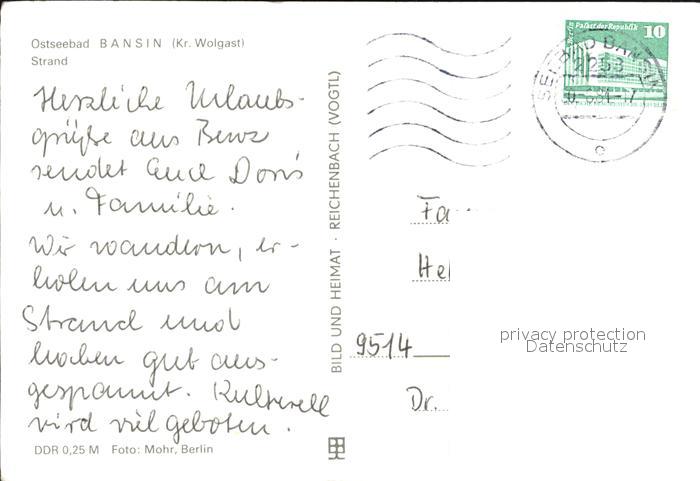 Ostseebad BANSIN (Kr. Wolgast)
Strand
Herzliche Urlaubs-
grüße aus Benz
sendet Euch Doris
u. Familie.
Wir wandern, er-
holen uns am
Strand und
haben gut aus-
gespannt. Kulturell
wird viel geboten.
DDR 0,25 M Foto: Mohr, Berlin
BILD UND HEIMAT · REICHENBACH (VOGTL)
Berlin Palast der Republik
10
SEEBAD BANSIN
2253
Fa
Hel
9514
Dr.
privacy protection
Datenschutz